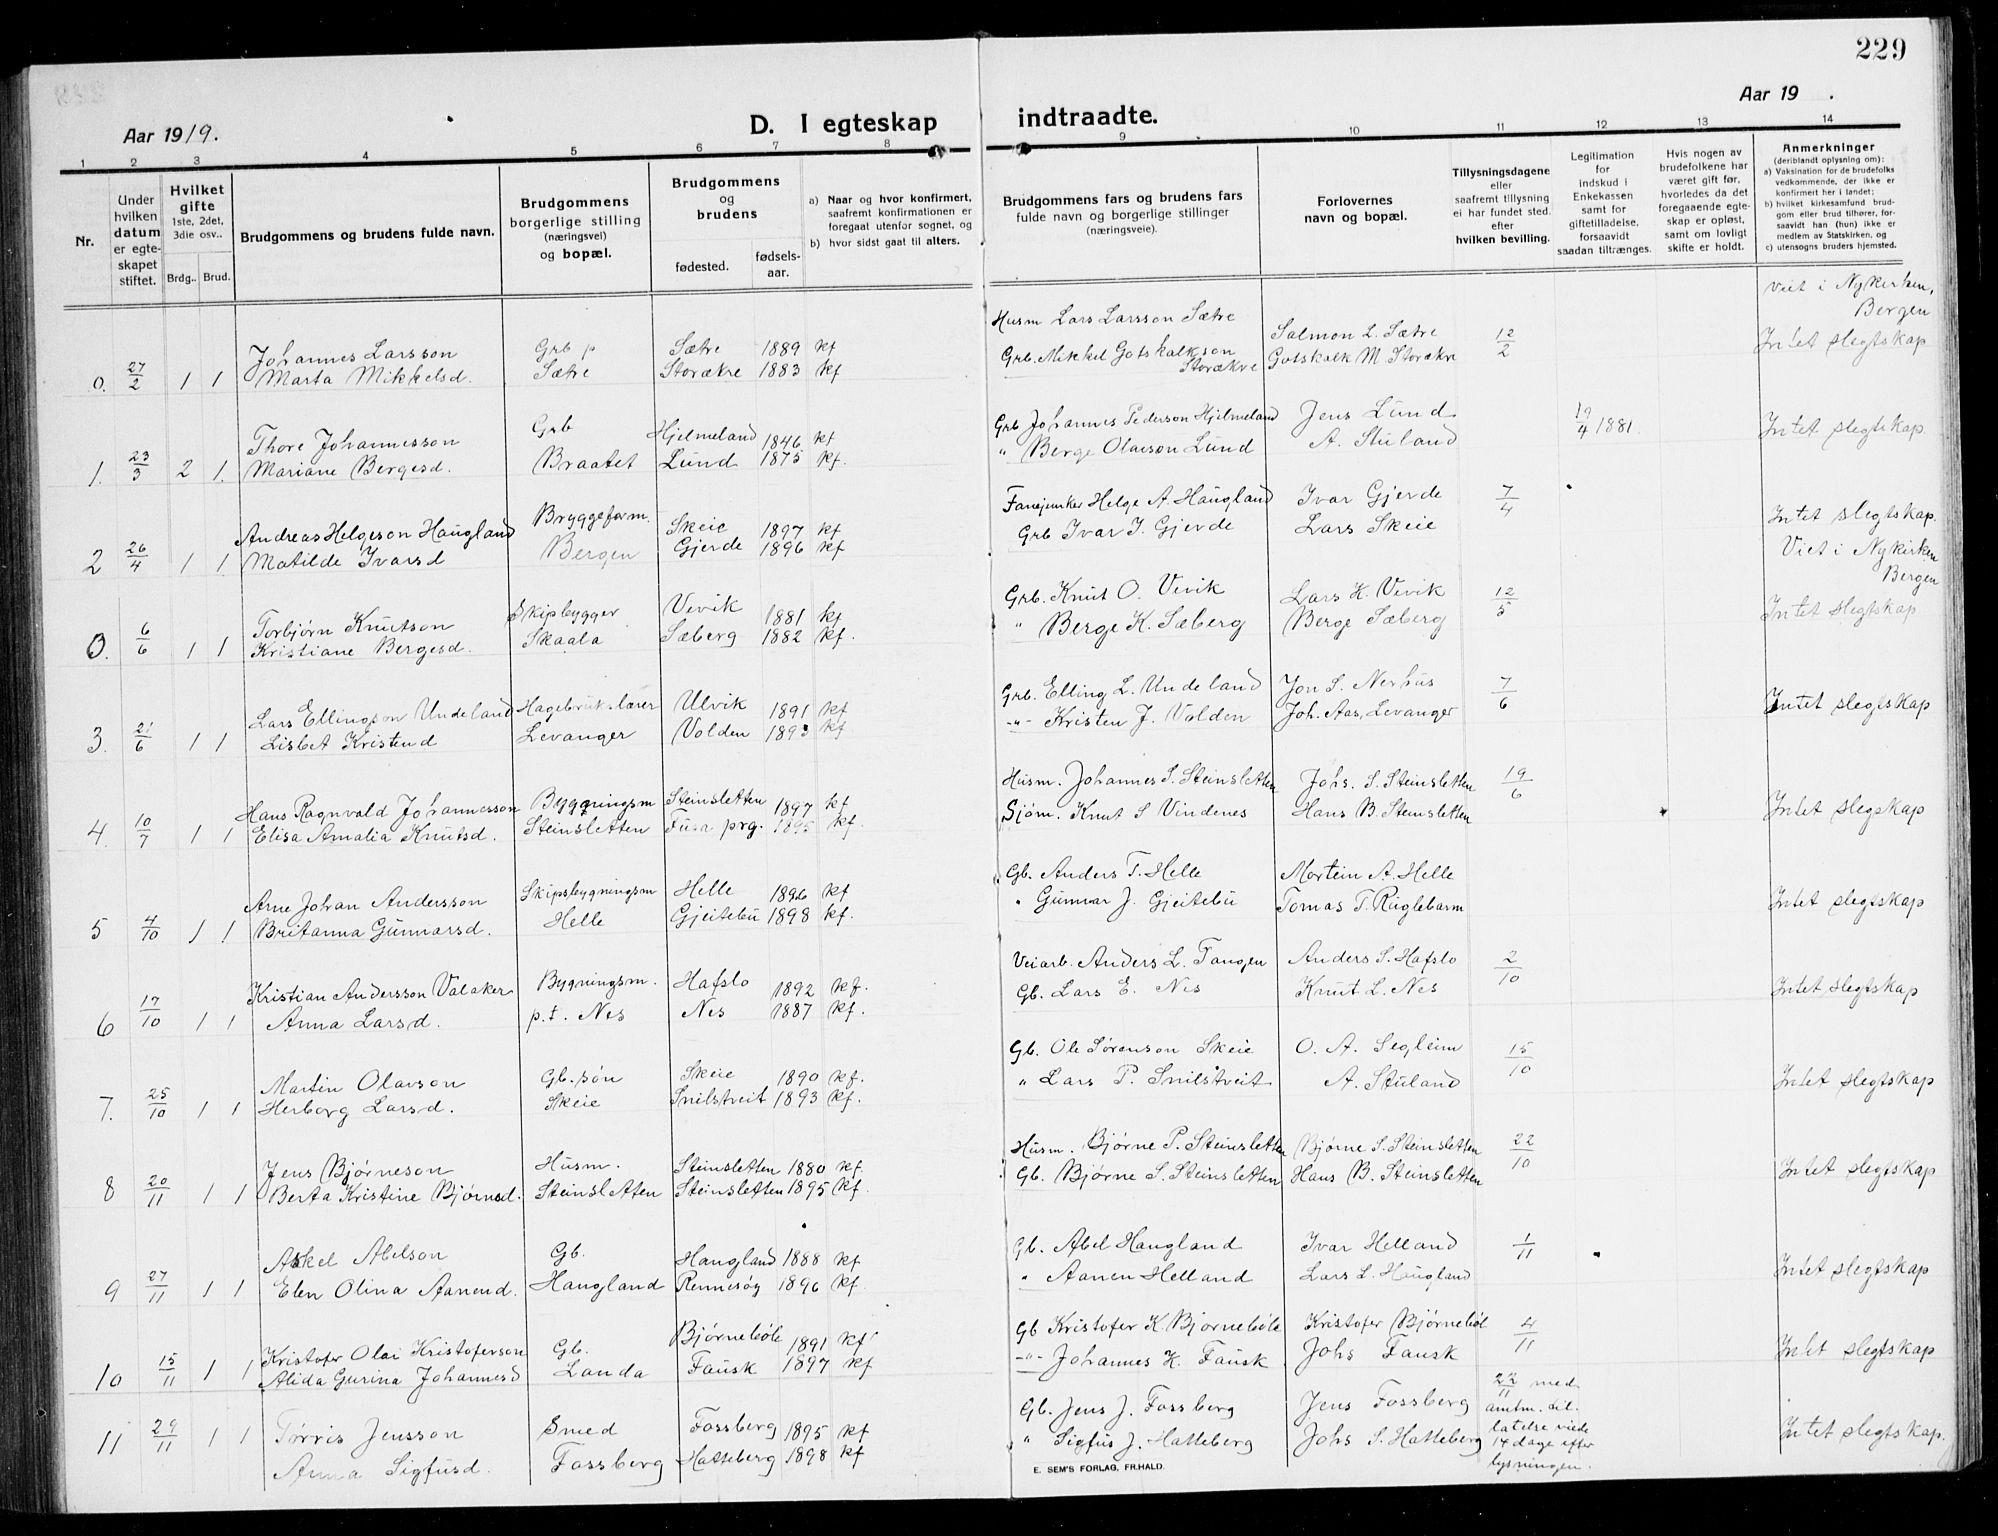 229
Aar 1919. D. I egteskap indtraadte. Aar 19 .
1 2 3 4 5 6 7 8 9 10 11 12 13 14
Nr.
Under hvilken datum er egteskapet stiftet.
Hvilket gifte 1ste, 2det, 3die osv..
Brdg.. Brud.
Brudgommens og brudens fulde navn.
Brudgommens borgerlige stilling (næringsvei) og bopæl.
Brudgommens og brudens
fødested. fødselsaar.
a) Naar og hvor konfirmert, saafremt konfirmationen er foregaat utenfor sognet, og
b) hvor sidst gaat til alters.
Brudgommens fars og brudens fars fulde navn og borgerlige stillinger (næringsveie).
Forlovernes navn og bopæl.
Tillysningsdagene eller saafremt tillysning ei har fundet sted. efter hvilken bevilling.
Legitimation for indskud i Enkekassen samt for giftetilladelse, forsaavidt saadan tiltrænges.
Hvis nogen av brudefolkene har været gift før, hvorledes da det foregaaende egteskap er opløst, samt om lovligt skifte er holdt.
Anmerkninger (deriblandt oplysning om):
a) Vaksination for de brudefolks vedkommende, der ikke er konfirmert her i landet;
b) hvilket kirkesamfund brudgom eller brud tilhører, forsaavidt han (hun) ikke er medlem av Statskirken, og
c) utensogns bruders hjemsted.
viet i Nykirken, Bergen
0. 27/2 1 1 Johannes Larsson Grb p Sætre 1889 kf Husm Lars Larsson Sætre Salmon L. Sætre 12/2 Intet slegtskap
Marta Mikkelsd. Sætre Storækre 1883 kf Grb. Mikkel Gotskalkson Storækre Gotskalk M Storækre
1. 23/3 2 1. Thore Johannesson Grb Hjelmeland 1846 kf Grb Johannes Pederson Hjelmeland Jens Lund 19/4 1881. Intet slegtskap
Mariane Bergesd. Braatet Lund 1875 kf. " Berge Olavson Lund A. Stuland
2 26/4 1 1. Andreas Helgeson Haugland Bryggeform. Skeie 1897 kf Fanejunker Helge A Haugland Ivar Gjerde 7/4 Intet slegtskap.
Matilde Ivarsd Bergen Gjerde 1896 kf Grb Ivar I. Gjerde Lars Skeie
Viet i Nykirken Bergen
0. 6/6 1 1 Torbjørn Knutson Skipbygger Vevik 1881 kf Grb. Knut O. Vevik Lars K. Vevik 12/5 Intet slegtskap
Kristiane Bergesd. Skaala Sæberg 1882 kf. " Berge K. Sæberg Berge Sæberg
3. 21/6 1 1 Lars Ellingson Undeland Hagebrukslærer Ulvik 1891 kf Grb. Elling L. Undeland Jon S. Nerhus 7/6 Intet slegtskap
Lisbet Kristend Levanger Volden 1893 kf -"- Kristen J. Volden Joh. Aas, Levanger
4. 10/7 1 1 Hans Ragnvald Johannesson Bygningsm Steinsletten 1897 kf Husm. Johannes S. Steinsletten Johs. S. Steinsletten 19/6 Intet slegtskap
Elisa Amalia Knutsd. Steinsletten Fusa prg. 1895 kf. Sjøm. Knut S Vindenes Hans B. Steinsletten
5 4/10 1 1 Arne Johan Andersson Skipsbygningsm Helle 1896 kf Gb. Anders T. Helle Mortein A. Helle Intet slegtskap
Britanna Gunnarsd. Helle Gjeitebu 1898 kf. " Gunnar J. Gjeitebu Tomas T. Ruglebarm
6 17/10 1 1 Kristian Andersson Valaker Bygningsm. Hafslo 1892 kf. Veiarb. Anders L. Tangen Anders S. Hafslo 2/10 Intet slegtskap
Anna Larsd. p.t. Nes Nes 1887 kf. Gb. Lars E. Nes Knut L. Nes
7. 25/10 1 1 Martin Olavson Gb. søn Skeie 1890 kf. Gb. Ole Sørenson Skeie O. A. Segleim 15/10 Intet slegtskap
Herborg Larsd. Skeie Snilstveit 1893 kf. " Lars P. Snilstveit A. Stuland
8 20/11 1 1 Jens Bjørneson Husm. Steinsletten 1880 kf. Husm. Bjørne P. Steinsletten Bjørne S. Steinsletten 22/10 Intet slegtskap
Berta Kristine Bjørnesd. Steinsletten Steinsletten 1895 kf. Gb. Bjørne S. Steinsletten Hans B. Steinsletten
9 27/11 1 1 Askel Abelson Gb. Haugland 1888 kf Gb. Abel Haugland Ivar Helland 1/11 Intet slegtskap
Elen Olina Aanend. Haugland Rennesøy 1896 kf. " Aanen Helland Lars L. Haugland
10 15/11 1 1 Kristofer Olai Kristoferson Gb. Bjørnebøle 1891 kf Gb Kristofer K. Bjørnebøle Kristofer Bjørnebøl 4/11 Intet slegtskap
Alida Gurina Johannesd Landa Fausk 1897 kf -"- Johannes K. Fausk Johs Fausk
11 29/11 1 1 Tørris Jensson Smed Fossberg 1895 kf Gb. Jens J. Fossberg Jens Fossberg 22/11 med amtm. tillatelse viede 14 dage efter lysningen. Intet slegtskap.
Anna Sigfusd. Fossberg Hatteberg 1898 kf " Sigfus J. Hatteberg Johs S. Hatteberg
E. SEM'S FORLAG, FR.HALD.